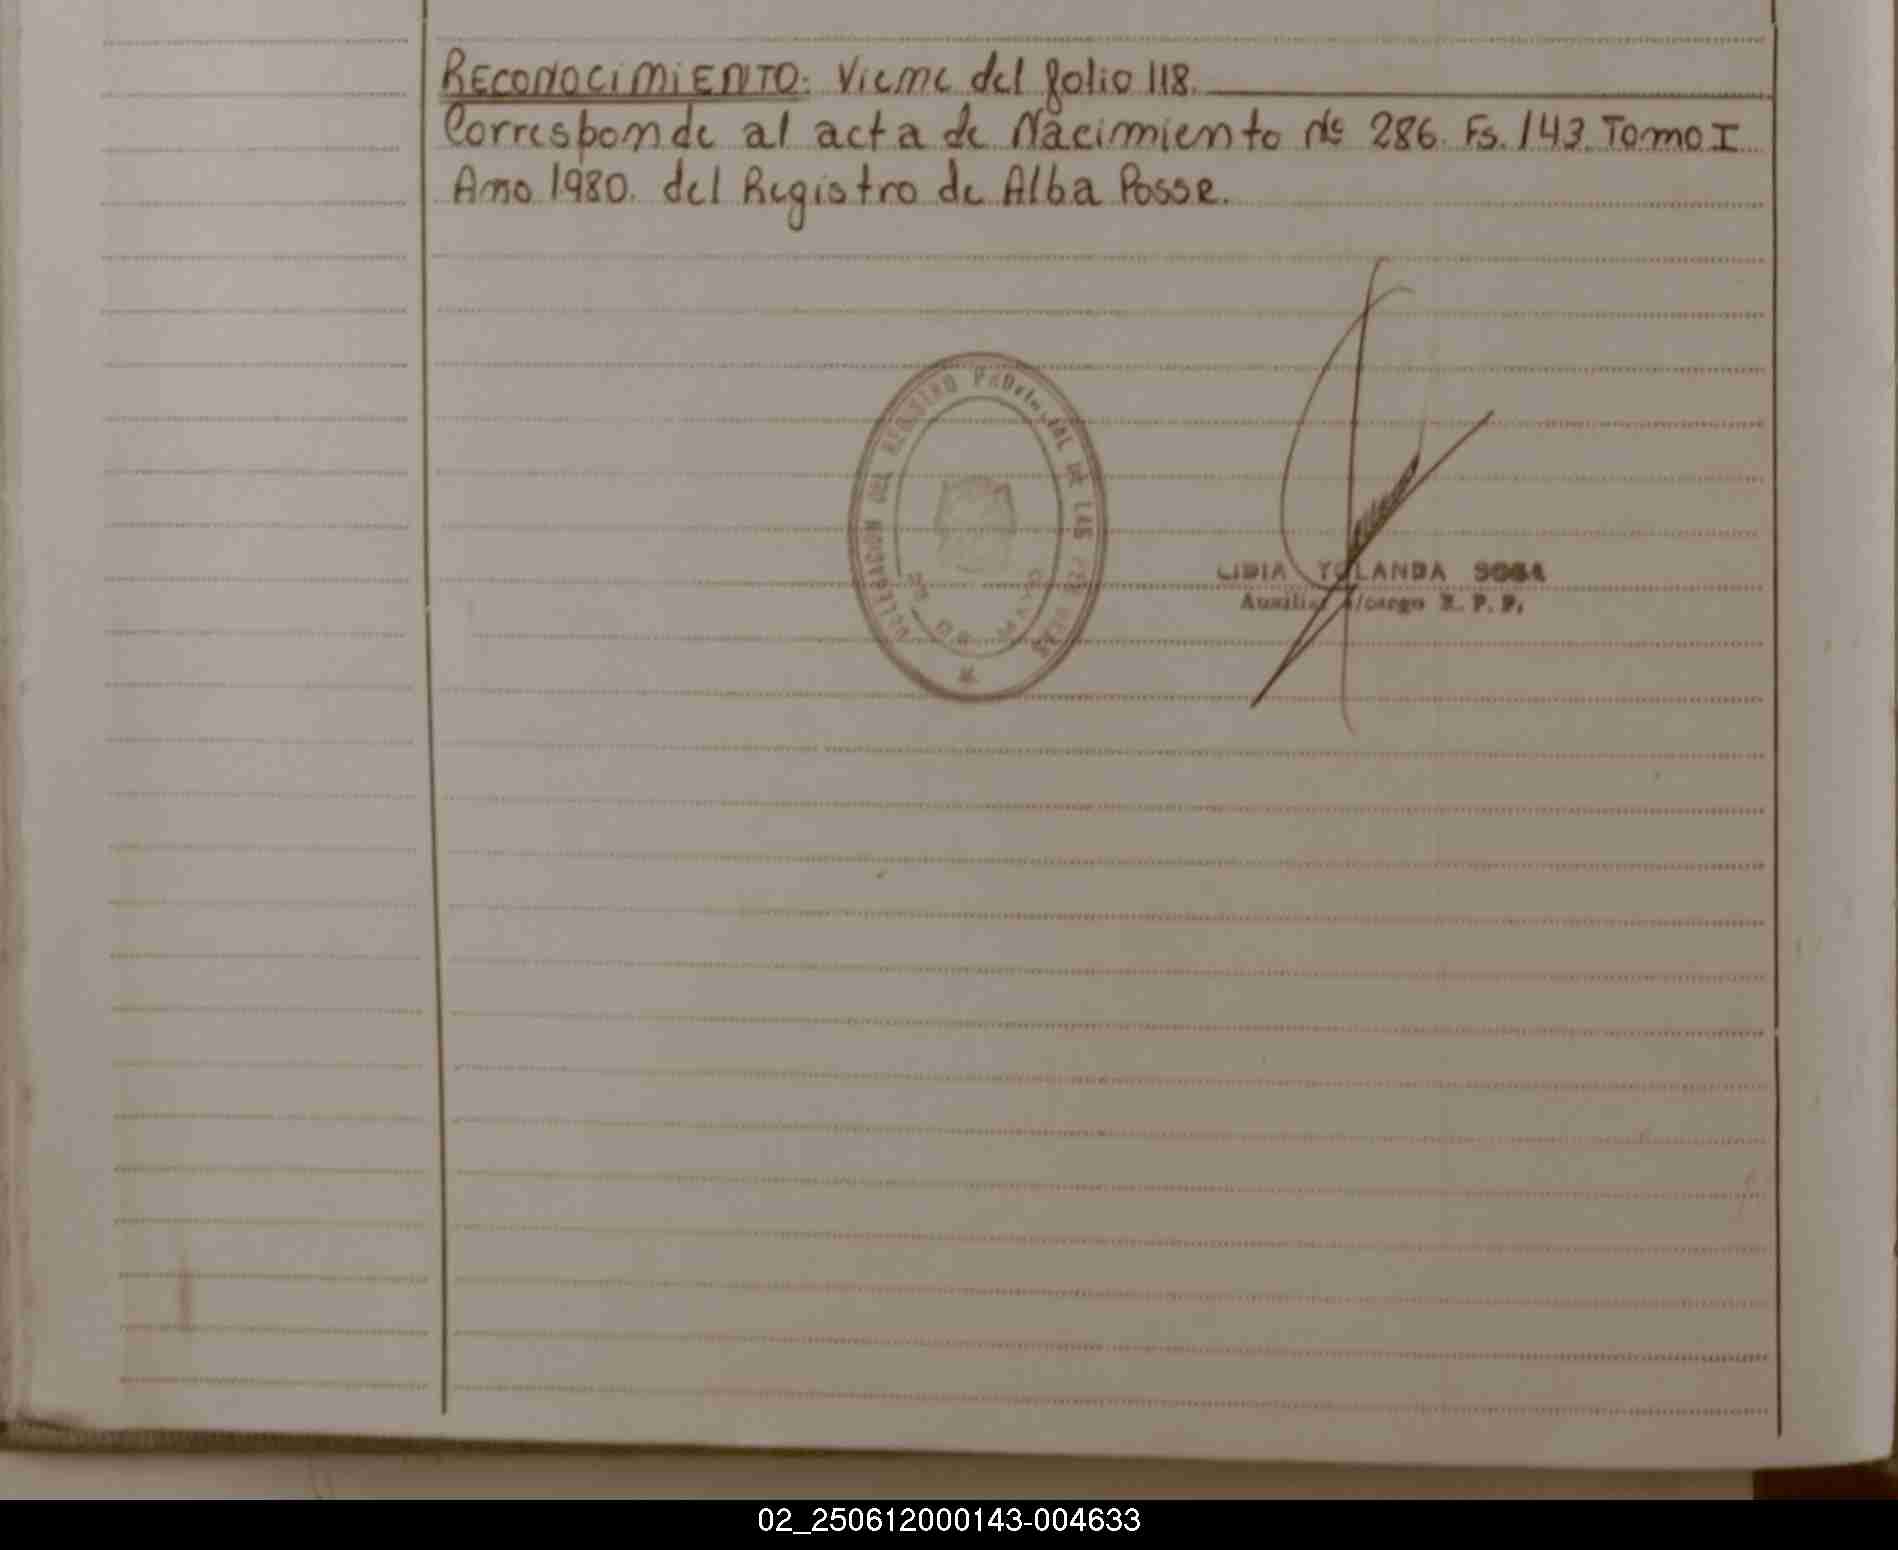 RECONOCIMIENTO: Viene del folio 118.
Corresponde al acta de Nacimiento Nº 286. Fs. 143. Tomo I
Ano 1980. del Registro de Alba Posse.
DELEGACION DEL REGISTRO PROVINCIAL DE LAS PERSONAS
25 DE MAYO
LIDIA YOLANDA SOSA
Auxiliar a/cargo R. P. P.
02_250612000143-004633